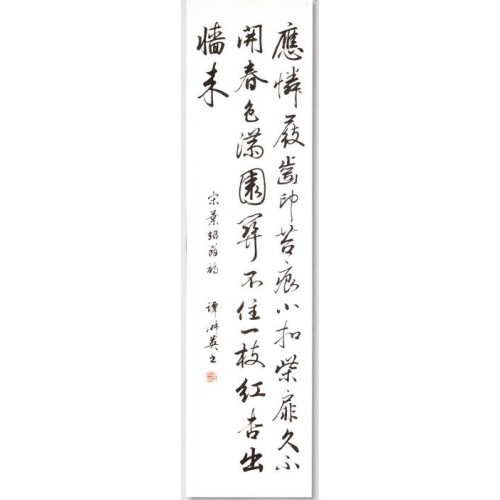 應憐屐齒印苔痕小扣柴扉久不
開春色滿園關不住一枝紅杏出
墻来
宋葉紹翁詩 譚英书